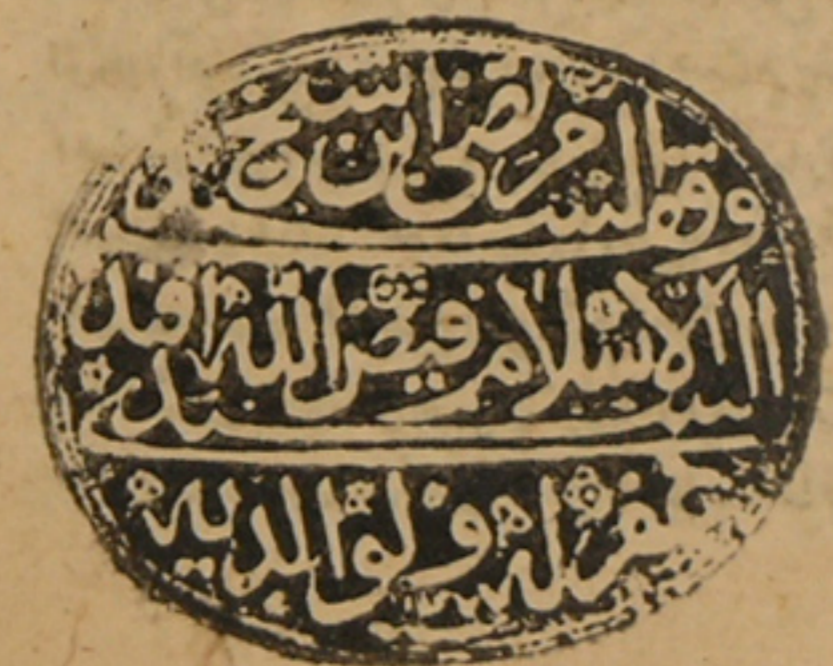 وقفه السيد مرتضى ابن شيخ
الاسلام السيد فيض الله افندي
غفر له ولوالديه